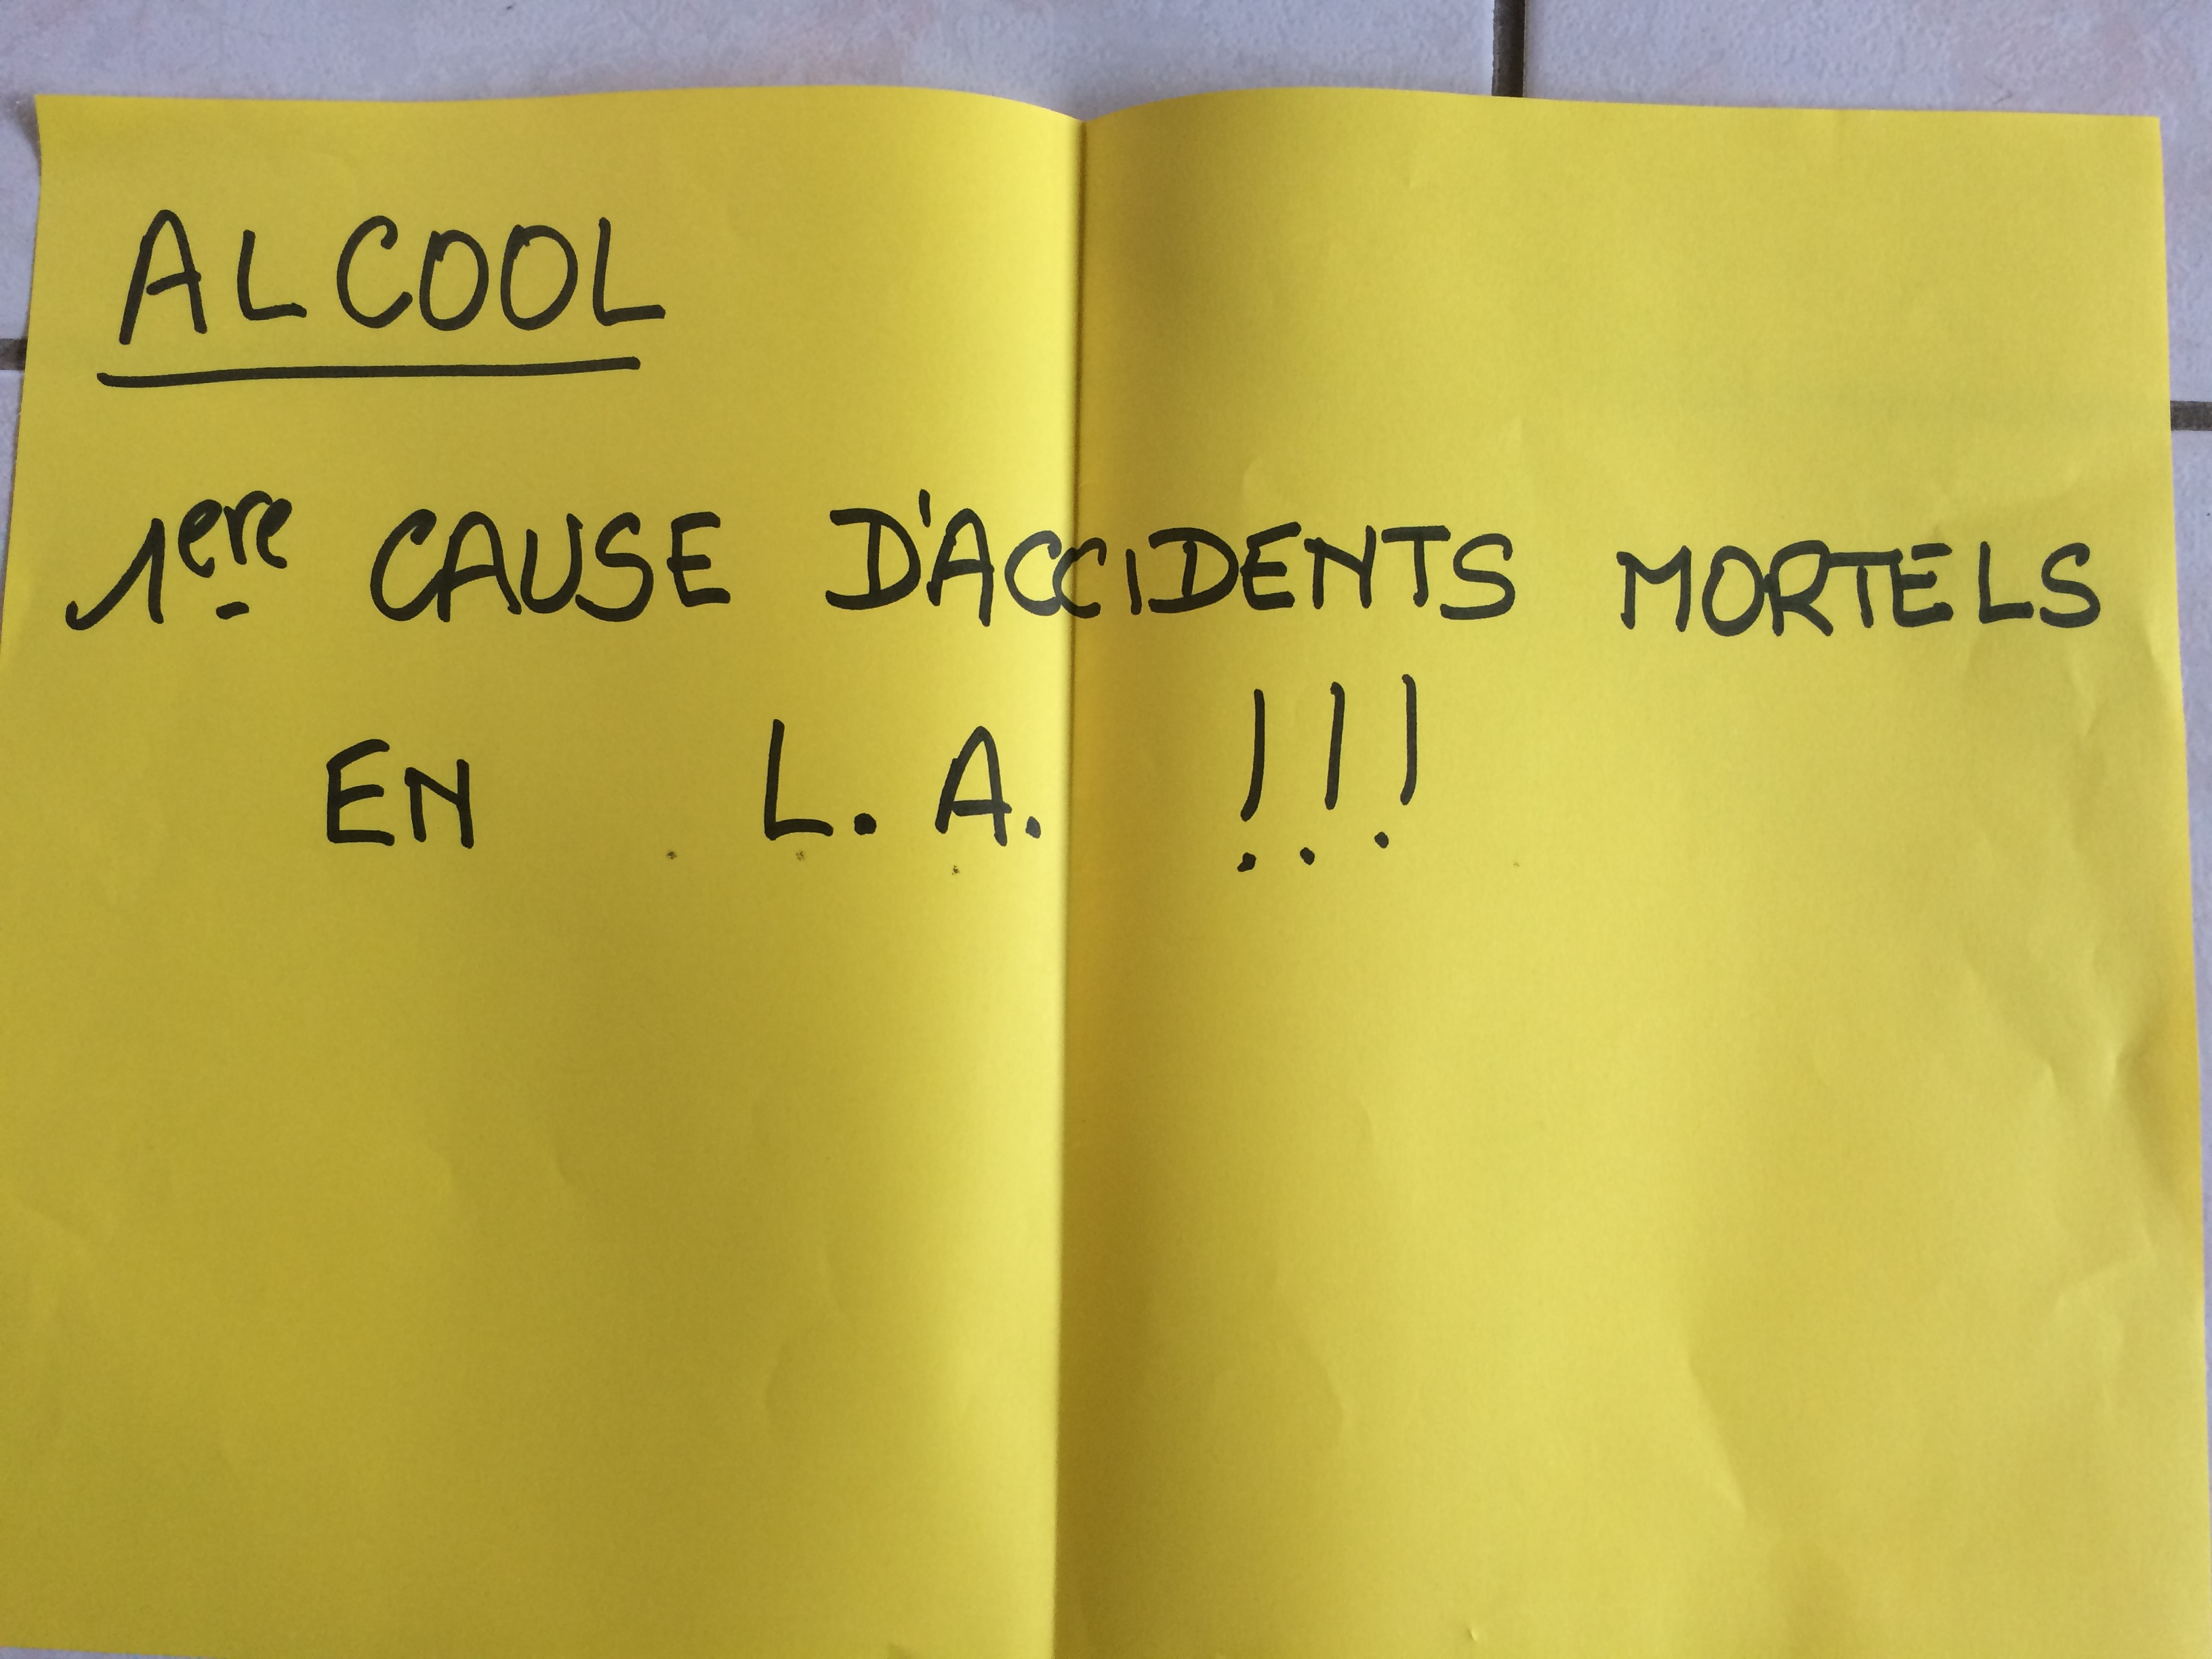 ALCOOL
1ere CAUSE D'ACCIDENTS MORTELS
EN L.A. !!!